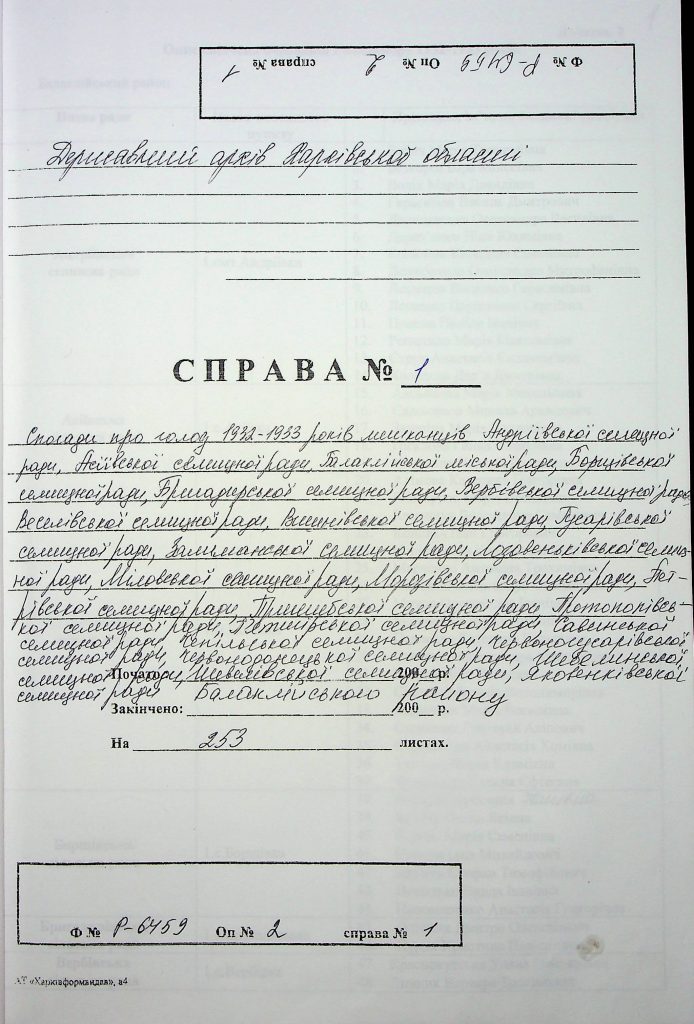 Ф № Р-6459 Оп № 2 справа № 1
Державний архів Харківської області
СПРАВА № 1
Спогади про голод 1932-1933 років мешканців Андріївської селищної
ради, Асіївської селищної ради, Балаклійської міської ради, Борщівської
селищної ради, Бригадирської селищної ради, Вербівської селищної ради
Веселівської селищної ради, Вишнівської селищної ради, Гусарівської
селищної ради, Залиманської селищної ради, Лозовеньківської селищ-
ної ради, Міловської селищної ради, Морозівської селищної ради, Пет-
рівської селищної ради, Пришибської селищної ради, Протопопівсь-
кої селищної ради, селищної ради, Савинської
селищної ради, Чепільської селищної ради, Червоногусарівської
селищної ради, Червонодонецької селищної ради, Шебелинської
селищної ради, селищної ради, Яковенківської
селищної ради Балаклійського району
Початок: 200 р.
Закінчено: 200 р.
На 253 листах.
Ф № Р-6459 Оп № 2 справа № 1
АТ «Харківформвидав», а4